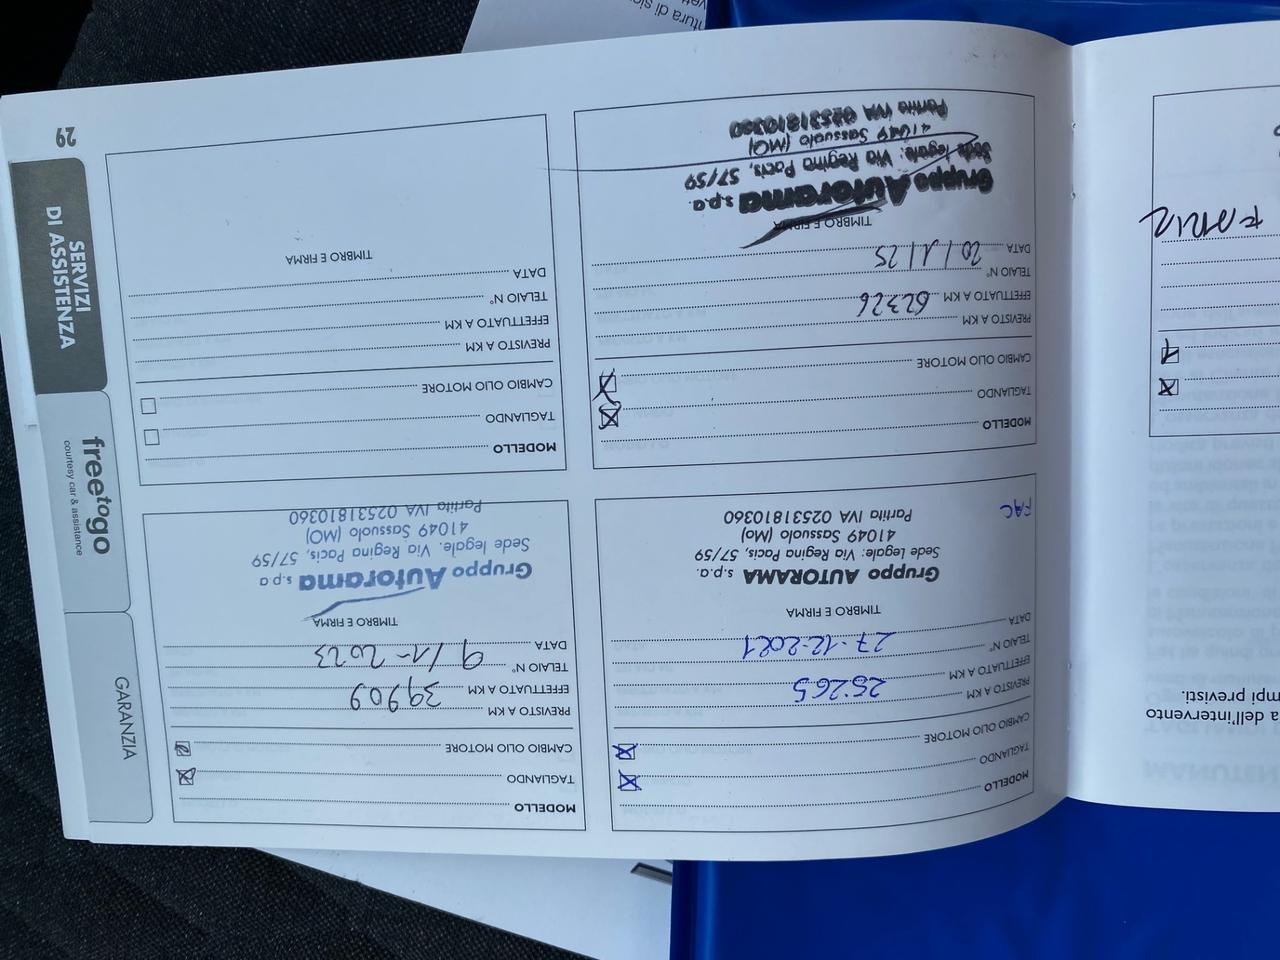 29
SERVIZI
DI ASSISTENZA
freetogo
courtesy car & assistance
GARANZIA
MODELLO
TAGLIANDO
CAMBIO OLIO MOTORE
PREVISTO A KM
EFFETTUATO A KM 25265
TELAIO N°
DATA 27-12-2021
TIMBRO E FIRMA
Gruppo AUTORAMA s.p.a.
Sede Legale: Via Regina Pacis, 57/59
41049 Sassuolo (Mo)
Partita IVA 02531810360
FAC
MODELLO
TAGLIANDO
CAMBIO OLIO MOTORE
PREVISTO A KM
EFFETTUATO A KM 39909
TELAIO N°
DATA 9/1-2023
TIMBRO E FIRMA
Gruppo Autorama s.p.a
Sede legale. Via. Regina Pacis, 57/59
41049 Sassuolo (MO)
Partita IVA 02531810360
MODELLO
TAGLIANDO
CAMBIO OLIO MOTORE
PREVISTO A KM
EFFETTUATO A KM 62326
TELAIO N°
DATA 20/1/25
TIMBRO E FIRMA
Gruppo Autorama s.p.a.
Sede legale: Via Regina Pacis, 57/59
41049 Sassuolo (MO)
Partita IVA 02531810360
MODELLO
TAGLIANDO
CAMBIO OLIO MOTORE
PREVISTO A KM
EFFETTUATO A KM
TELAIO N°
DATA
TIMBRO E FIRMA
a dell'intervento
mpi previsti.